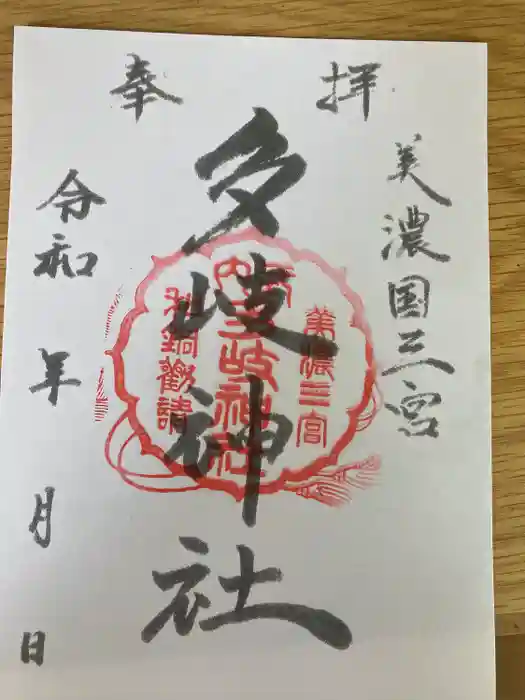 奉拝
美濃国三宮
多岐神社
美濃三宮
多岐神社
和銅勸請
令和 年 月 日